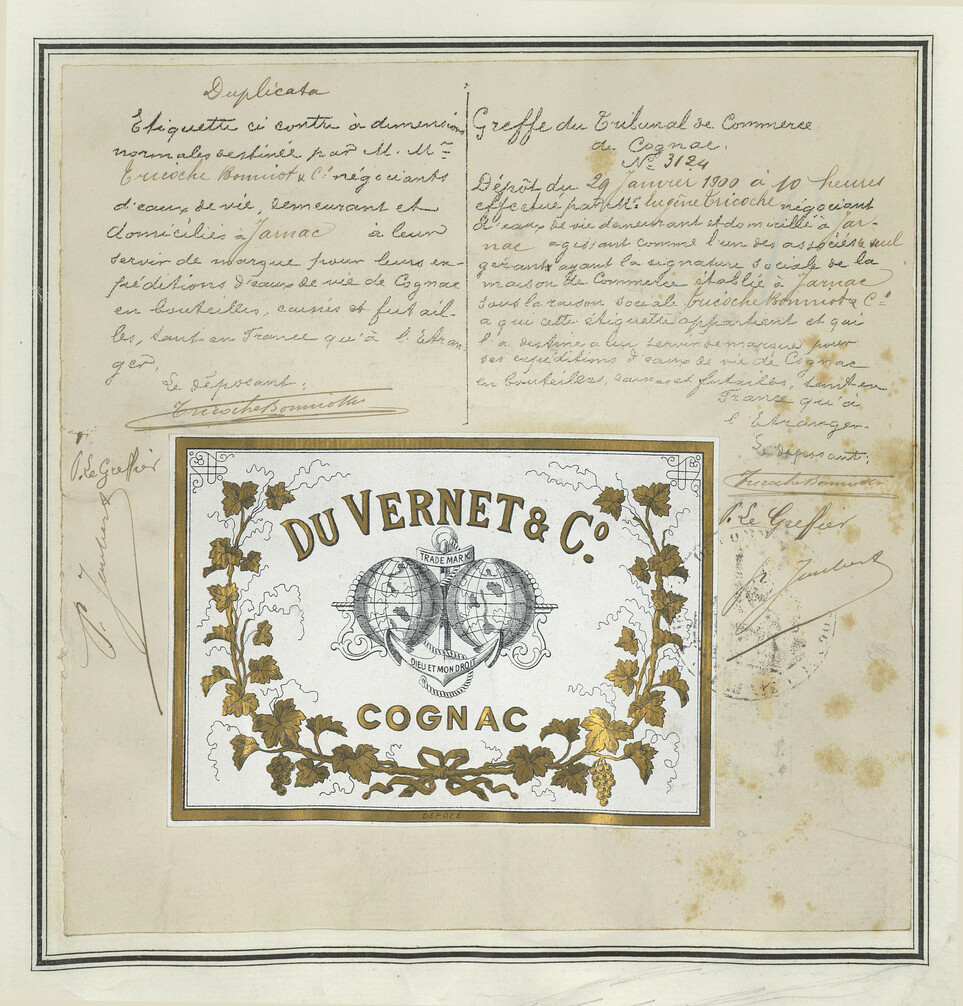 Duplicata
Etiquette ci contre à dimensions
normales destinée par M. Mrs
Tricoche Bonniot & Cie négociants
d'eaux de vie, demeurant et
domiciliés à Jarnac à leur
servir de marque pour leurs ex-
péditions d'eaux de vie de Cognac
en bouteilles, caisses et futail-
les, tant en France qu'à l'Etran-
ger.
Le déposant:
Tricoche Bonniot & Cie
P. Le Greffier
P. Joubert
Greffe du Tribunal de Commerce
de Cognac.
No 3124
Dépôt du 29 Janvier 1900 à 10 heures
effectué par Mr. Eugène Tricoche négociant
d'eaux de vie demeurant et domicilié à Jar-
nac agissant comme l'un des associés & seul
gérant ayant la signature sociale de la
maison de Commerce établie à Jarnac
sous la raison sociale Tricoche Bonniot & Cie
a qui cette étiquette appartient et qui
l'a destine a leur servir de marque pour
ses expéditions d'eaux de vie de Cognac
en bouteilles, caisses et futailles, tant en
France qu'à
l'Etranger.
Le déposant:
Tricoche Bonniot & Cie
P. Le Greffier
P. Joubert
DU VERNET & Co.
TRADE MARK
DIEU ET MON DROIT
COGNAC
DEPOZE